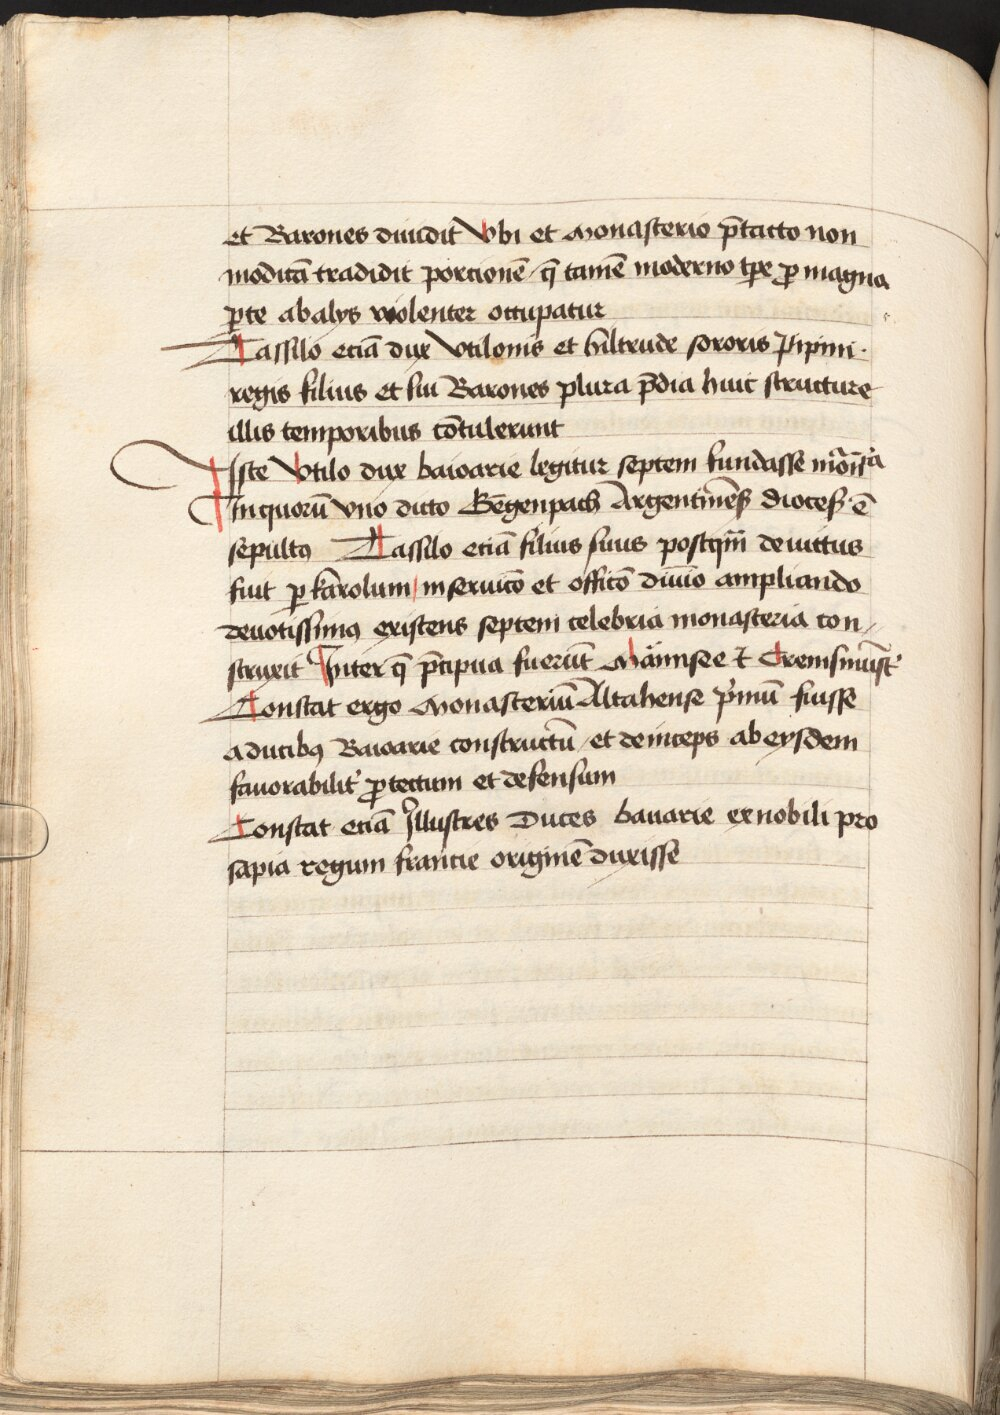 et Barones diuidit Vbi et Monasterio p̄tacto non
modicā tradidit porcionē / q̄ tamē moderno tꝑe ꝓ magna
ꝑte ab alys violenter occupatur
Tassilo eciā dux Vtilonis et hiltrude sororis Pipini ·
regis filius et sui Barones plura p̄dia huic structure
illis temporibus cōtulerunt
Iste Vtilo dux baioarie legitur septem fundasse mo᷑nst᷑ia
In quorū vno dicto Gēgenpach Argentineñ dioces᷑ · ē
sepultꝰ Tassilo eciā filius suus postqm̄ deuictus
fuit ꝑ karolum / in seruicō et officō diuīo ampliando
deuotissimꝰ existens septem celebria monasteria con⸗
struxit Inter q̄ p̄cipua fuerūt Mäinsee ⁊ Cremsmūst᷑
Constat ergo Monasteriū Altahense p̓mū fuisse
a ducibꝰ Baioarie constructū / et deinceps ab eysdem
fauorabilit᷑ ꝓtectum et defensum
Constat eciā Illustres Duces bauarie ex nobili pro
sapia regum francie originē duxisse